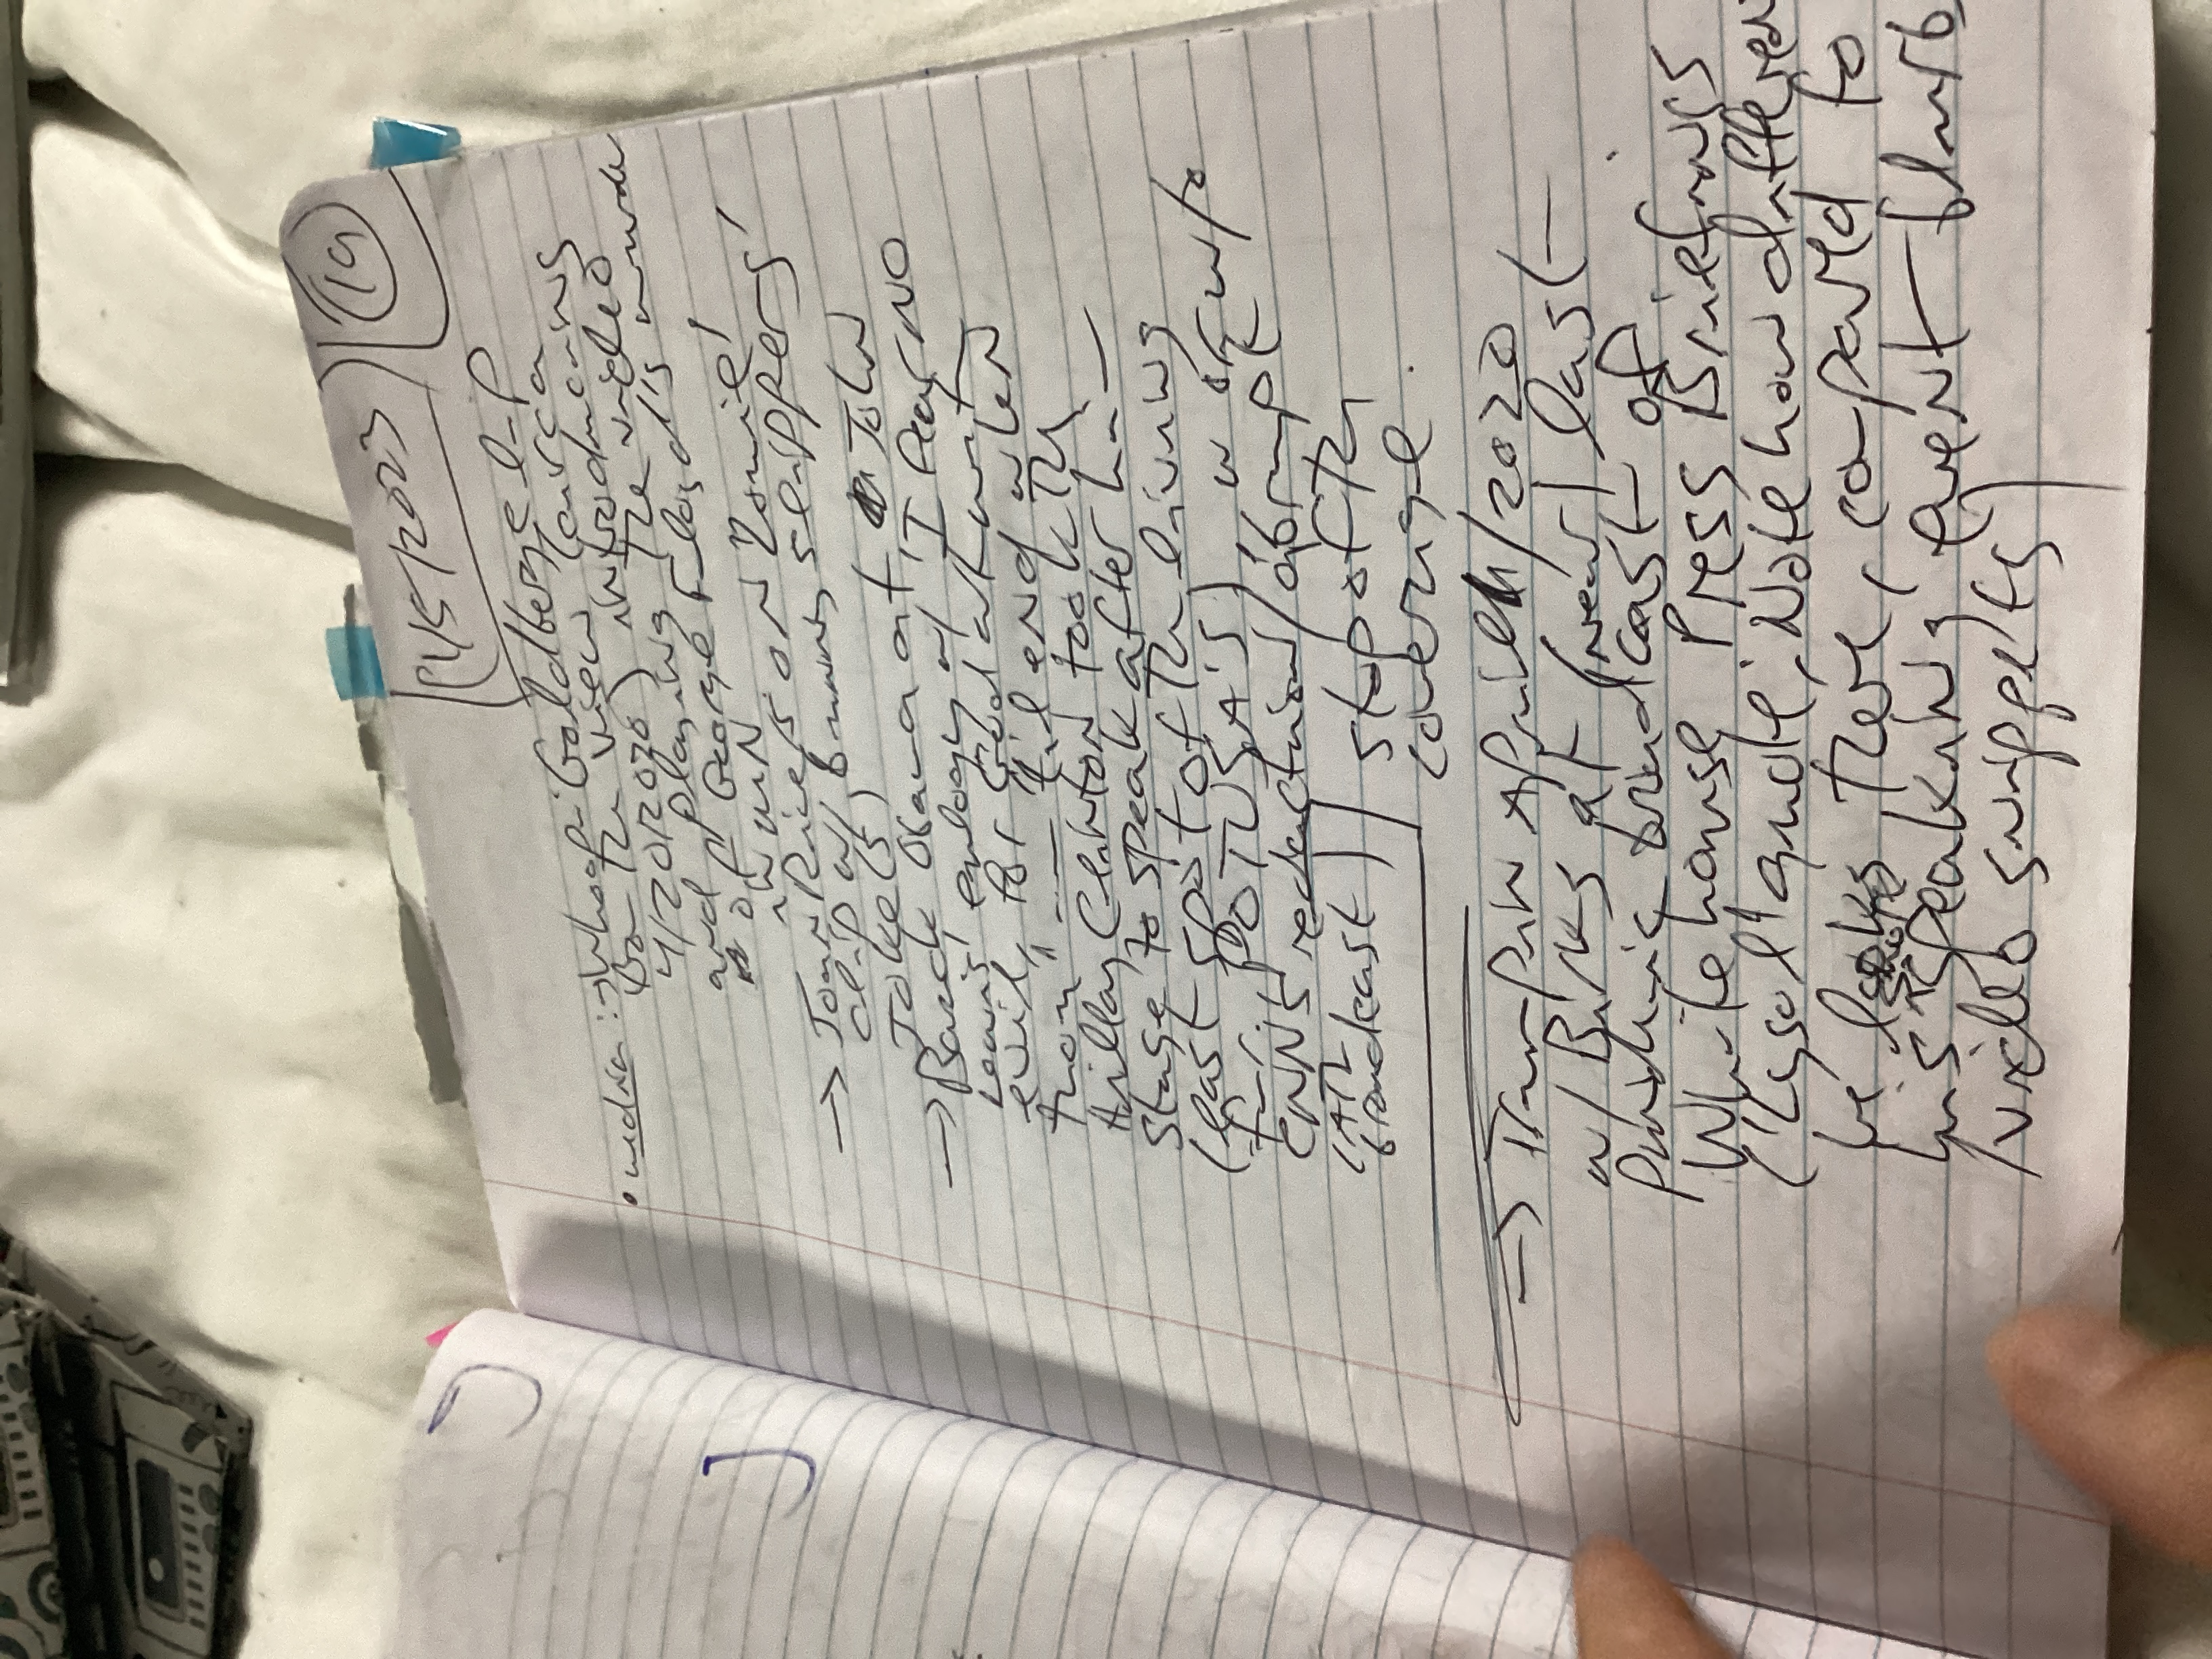 19
4/5/2023
• media: → Whoopi Goldberg clip
(on the View (circa
4/20/2020) introducing
and playing the video
of George Floyd's murder
in MN.
→ Joan Rivers on
clip w/ bunny slippers'
Joke(s)
→ Barack Obama at John
Lewis' eulogy w/ 'I fear NO
evil, for God art with
thou" --- 'til end when
Hillary Clinton took the
stage to speak after him
(last spot of the living
fmr. POTUSA'S), w or w/o
CNN's redaction/abrupt
stop of the
coverage.
(ATL
broadcast)
→ Trump in April/2020
w/ Birks at (near) last
pandemic broadcast of
Whitehouse Press Briefings
('Lysol' quote; Note how differen
he looks there, compared to
his speaking event blurb
/video snippets)